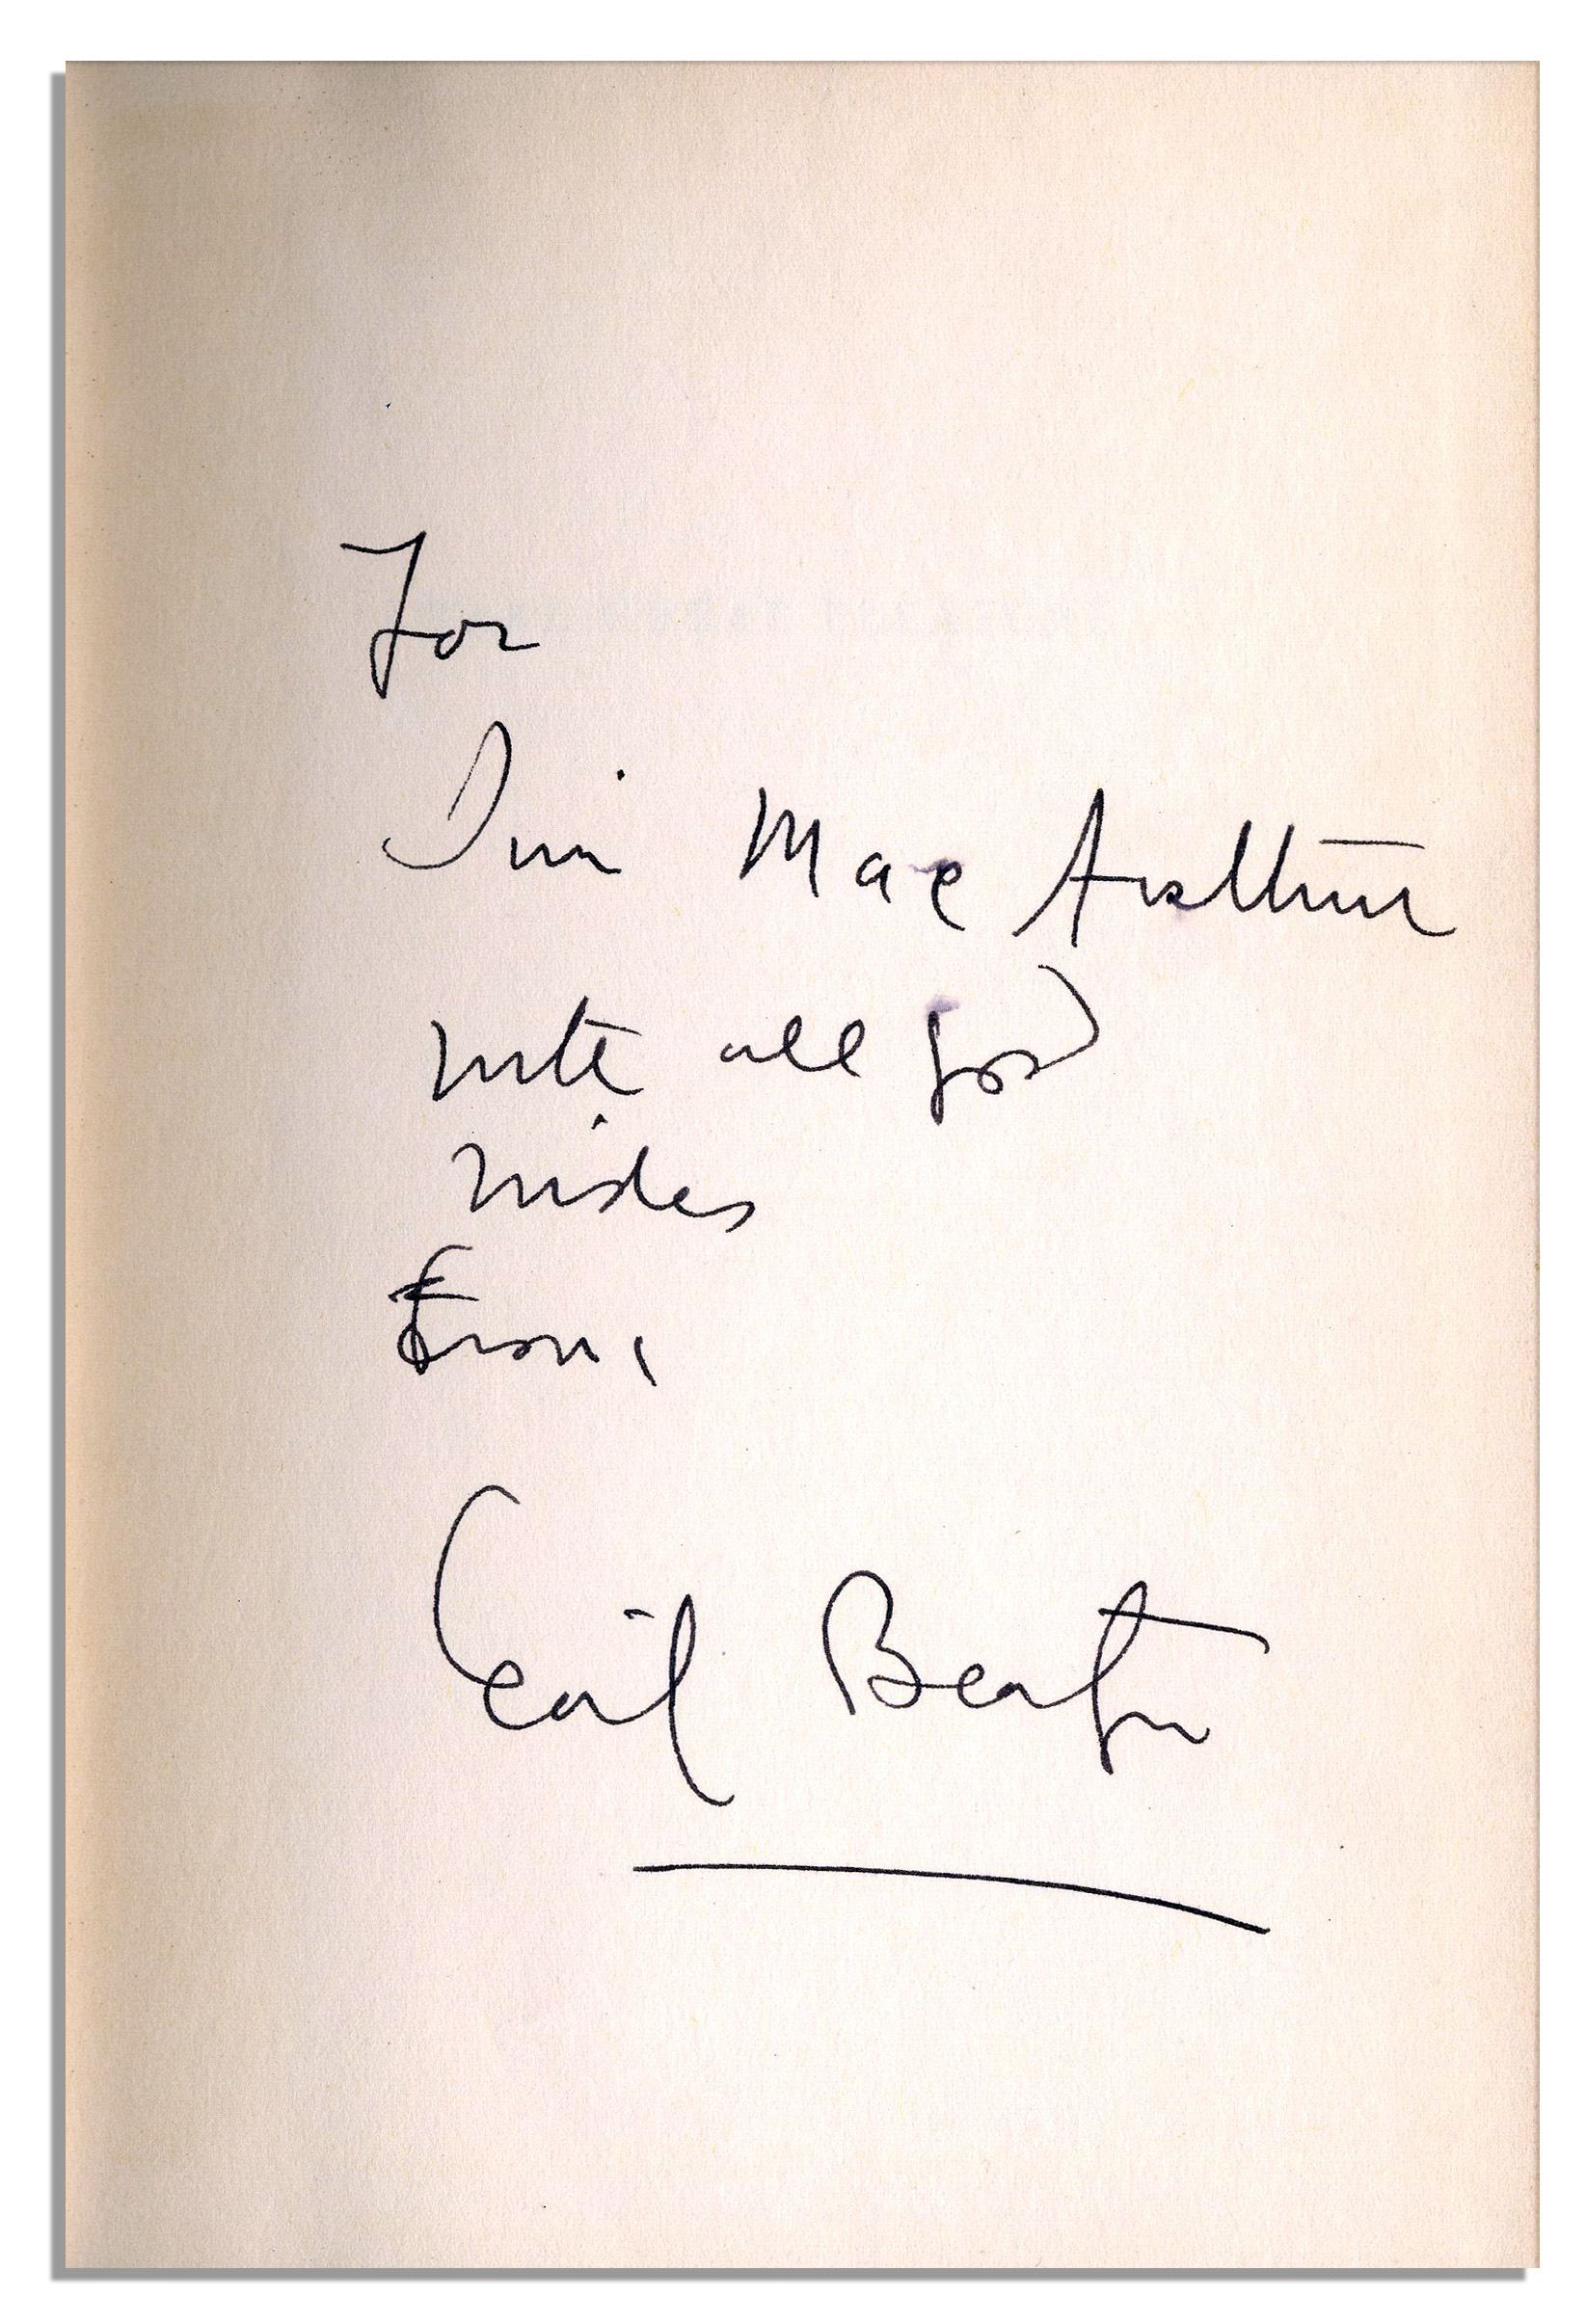 For
Jim Mac Arthur
with all good
wishes
from
Cecil Beaton